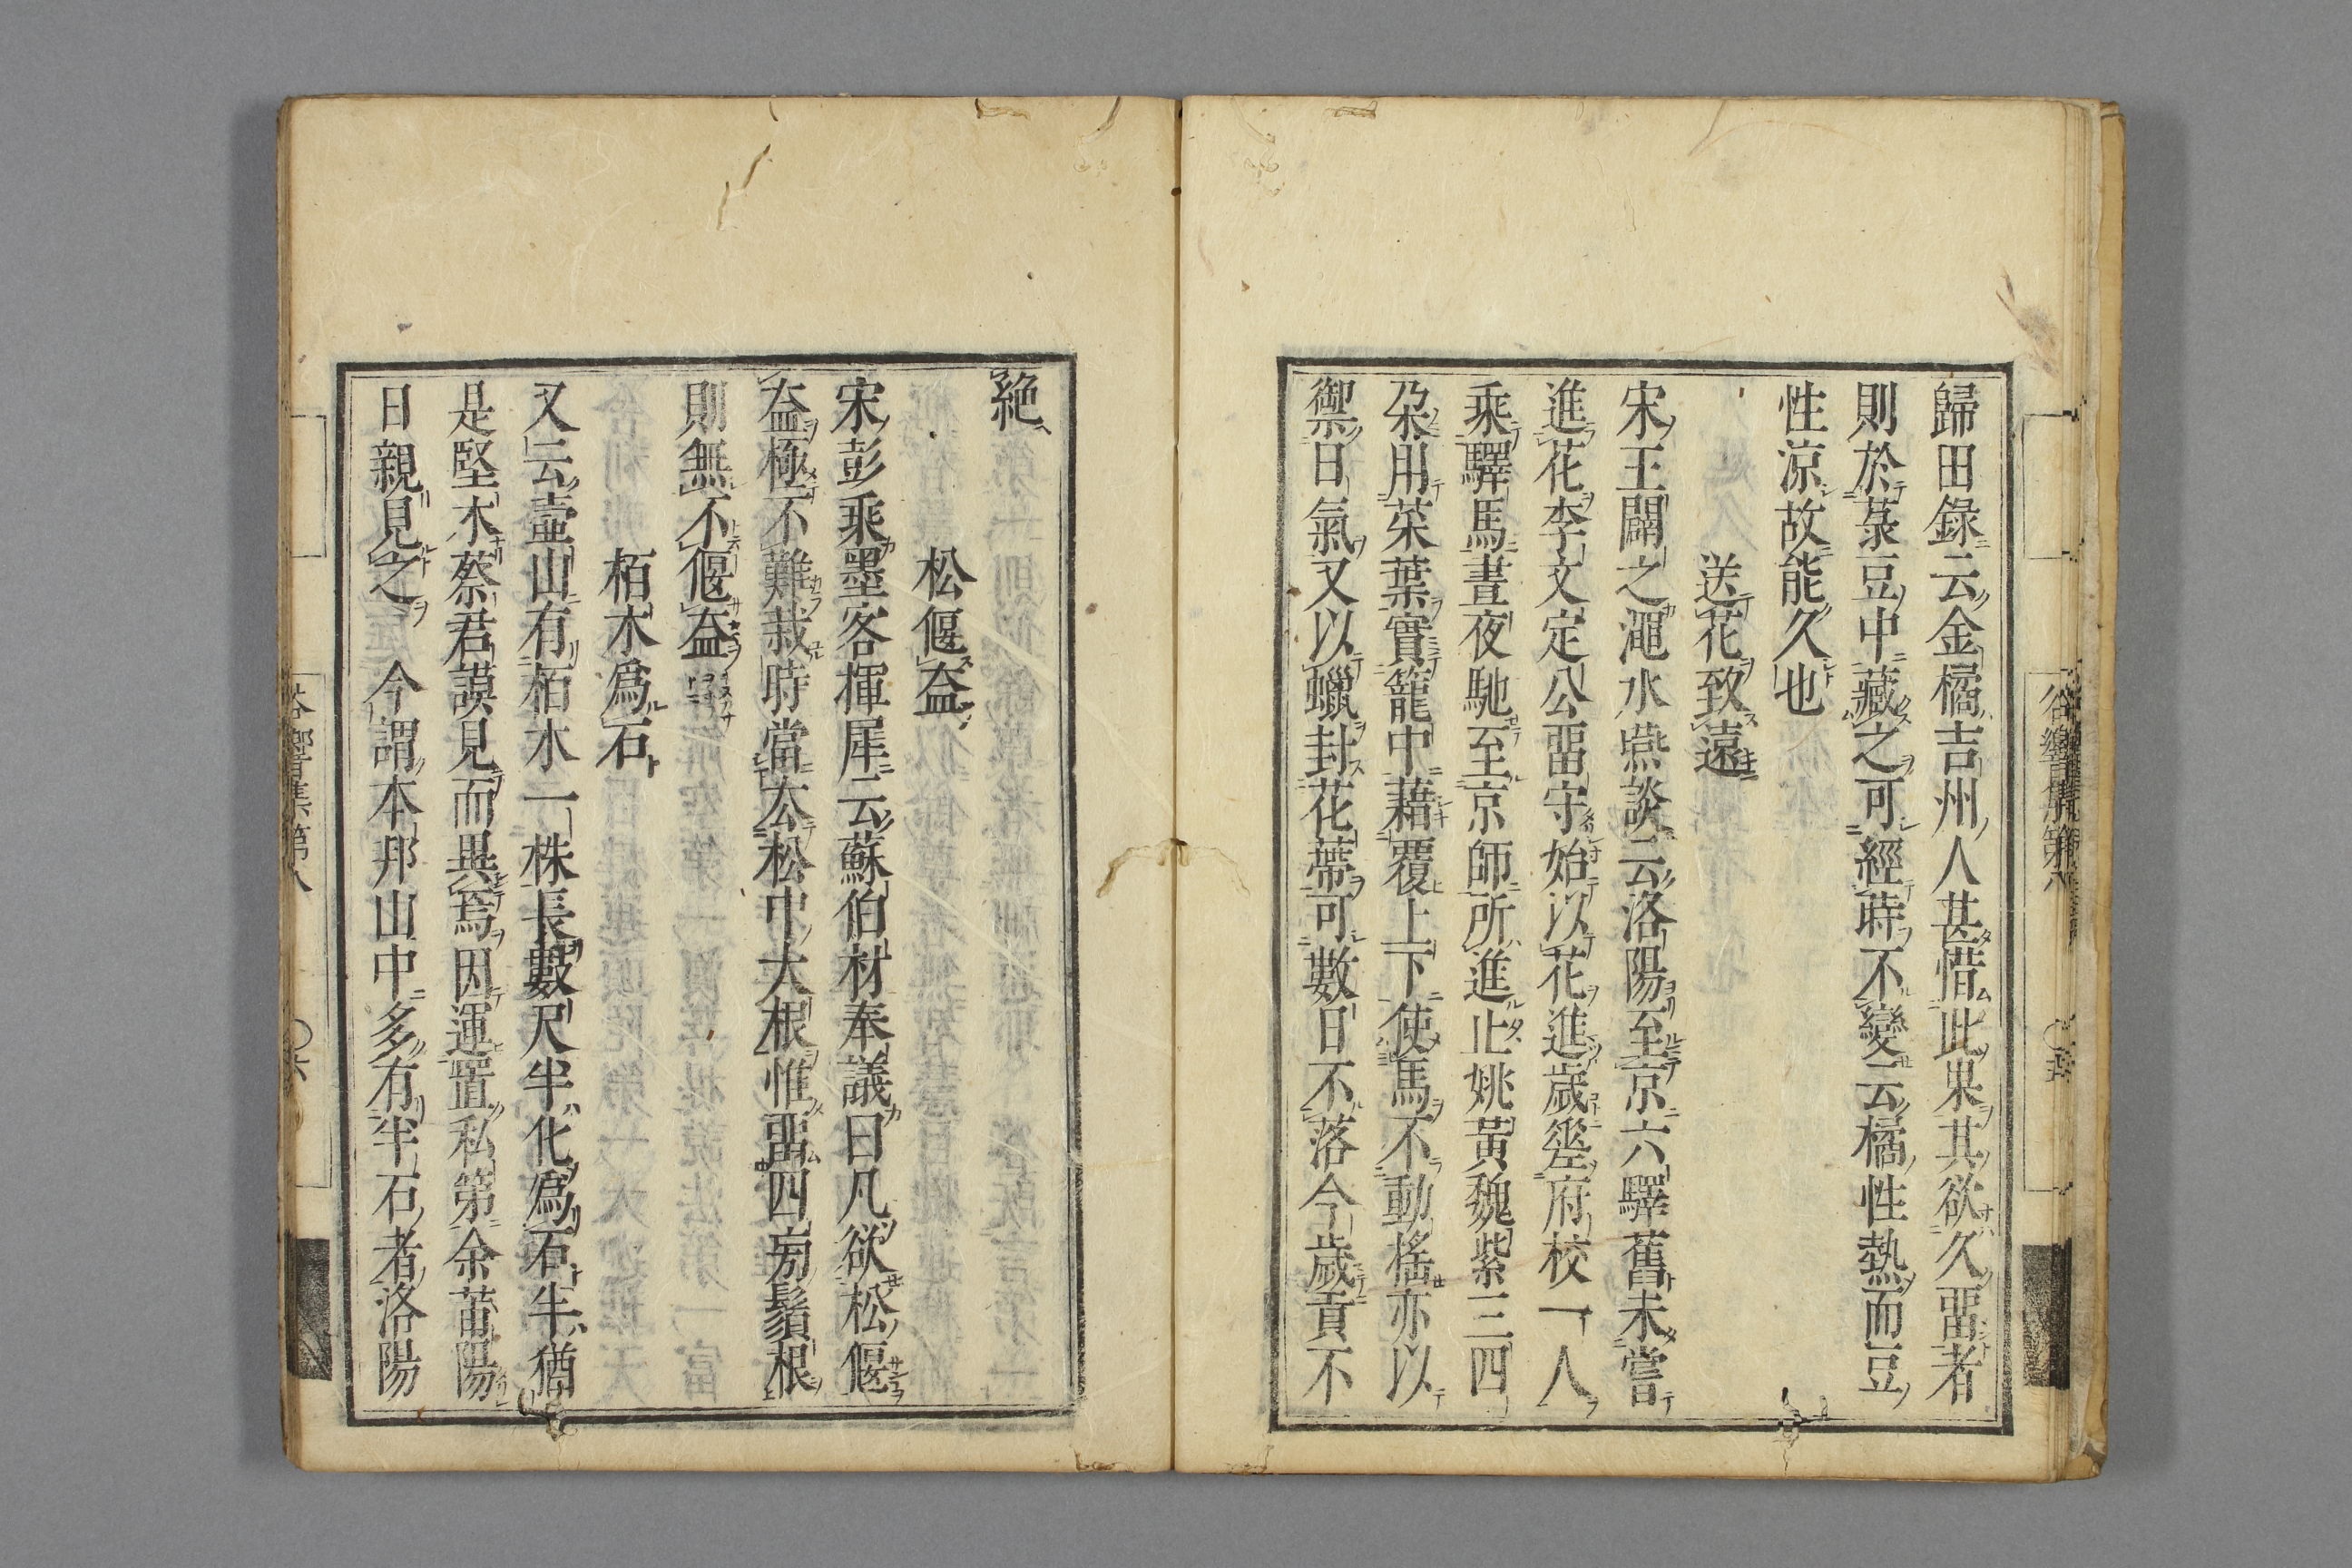 歸田錄云金橘吉州人甚惜此果其欲久畱者
則於菉豆中藏之可經時不變云橘性熱而豆
性涼故能久也
送花致遠
宋王闢之澠水燕談云洛陽至京六驛舊未嘗
進花李文定公畱守始以花進歲差府校一人
乘驛馬晝夜馳至京師所進止姚黃魏紫三四
朶用菜葉實籠中藉覆上下使馬不動搖亦以
禦日氣又以蠟封花蔕可數日不落今歲貢不
絕
松偃葢
宋彭乘墨客揮犀云蘇伯材奉議曰凡欲松偃
葢極不難栽時當去松中大根惟畱四旁鬚根
則無不偃葢
栢木爲石
又云壺山有栢木一株長數尺半化爲石半猶
是堅木蔡君謨見而異焉因運置私第余莆陽
日親見之 今謂本邦山中多有半石者洛陽
谷響集第八
〇五
谷響集第八
〇六